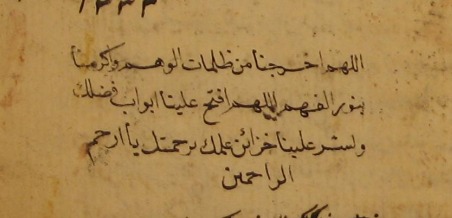 اللهم اخرجنا من ظلمات الوهم واكرمنا
بنور الفهم اللهم افتح علينا ابواب فضلك
وانشر علينا خزائن علمك برحمتك يا ارحم
الراحمين